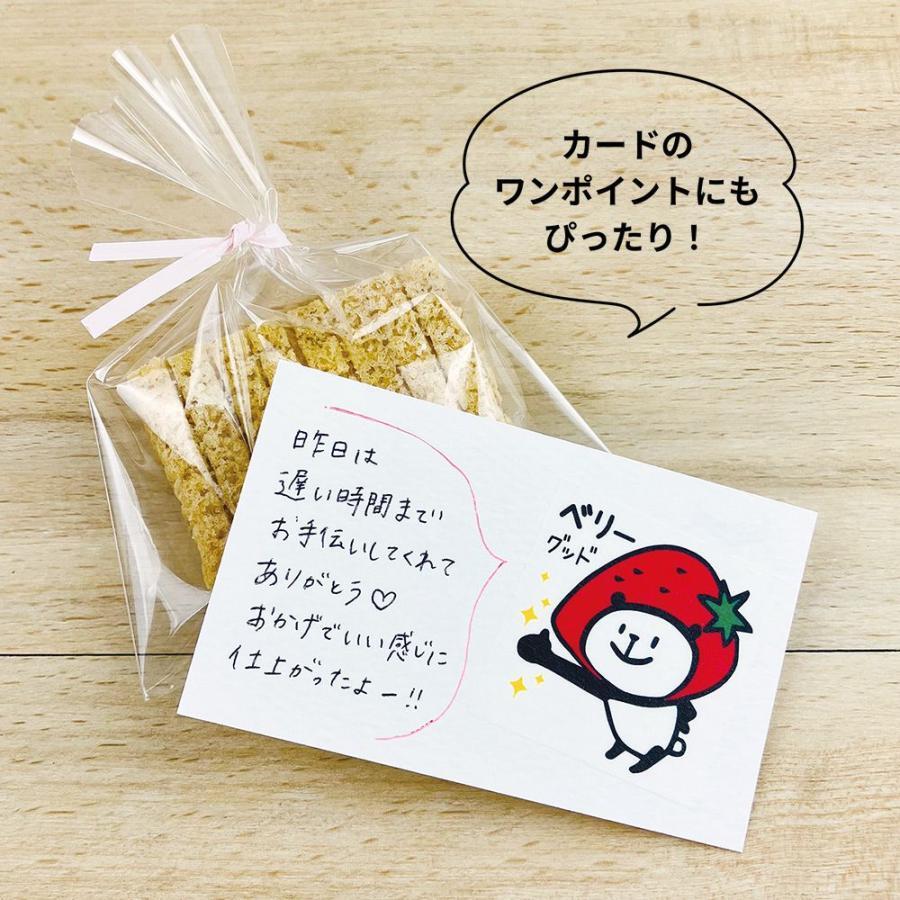 カードの
ワンポイントにも
ぴったり！
昨日は
遅い時間まで
お手伝いしてくれて
ありがとう♡
おかげでいい感じに
仕上がったよー!!
ベリー
グッド